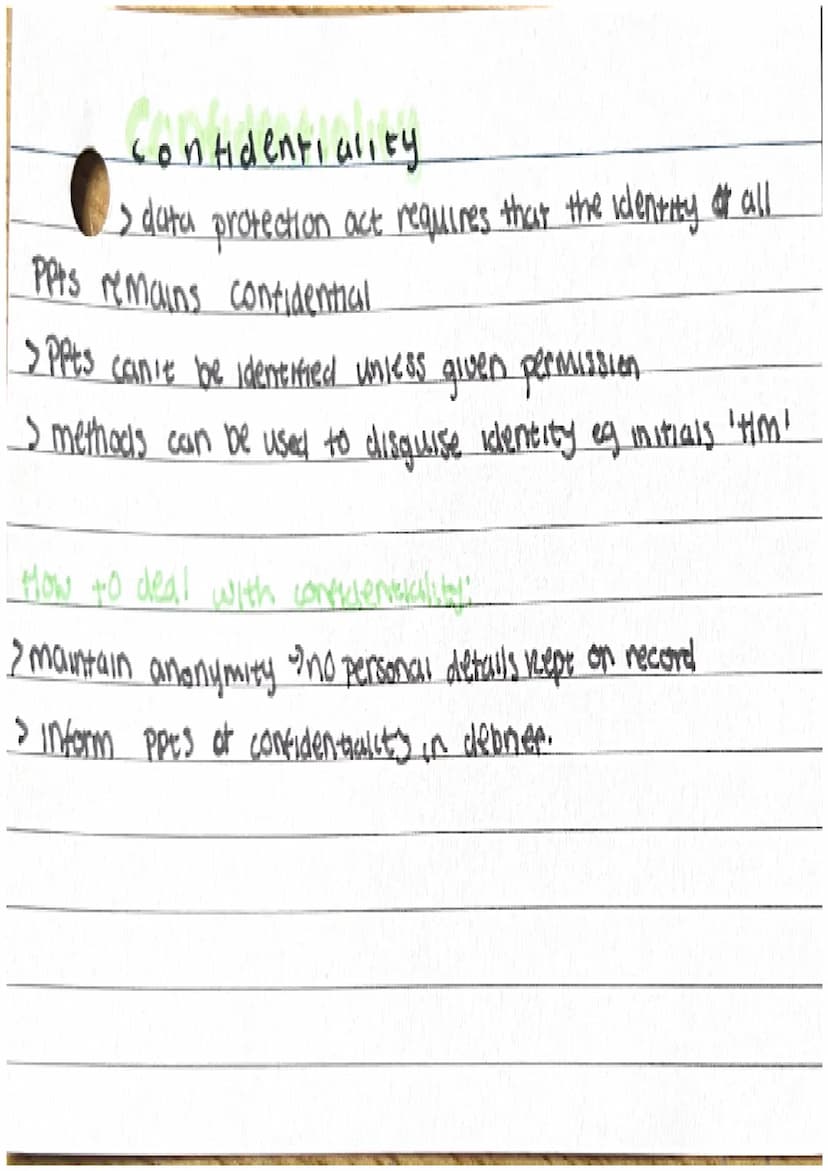 Confidentiality
> data protection act requires that the identity of all
PPts remains confidential
> PPts can't be identified unless given permission
> methods can be used to disguise identity eg initials 'HM'
How to deal with confidentiality:
> maintain anonymity → no personal details kept on record
> inform PPts of confidentiality in debrief.